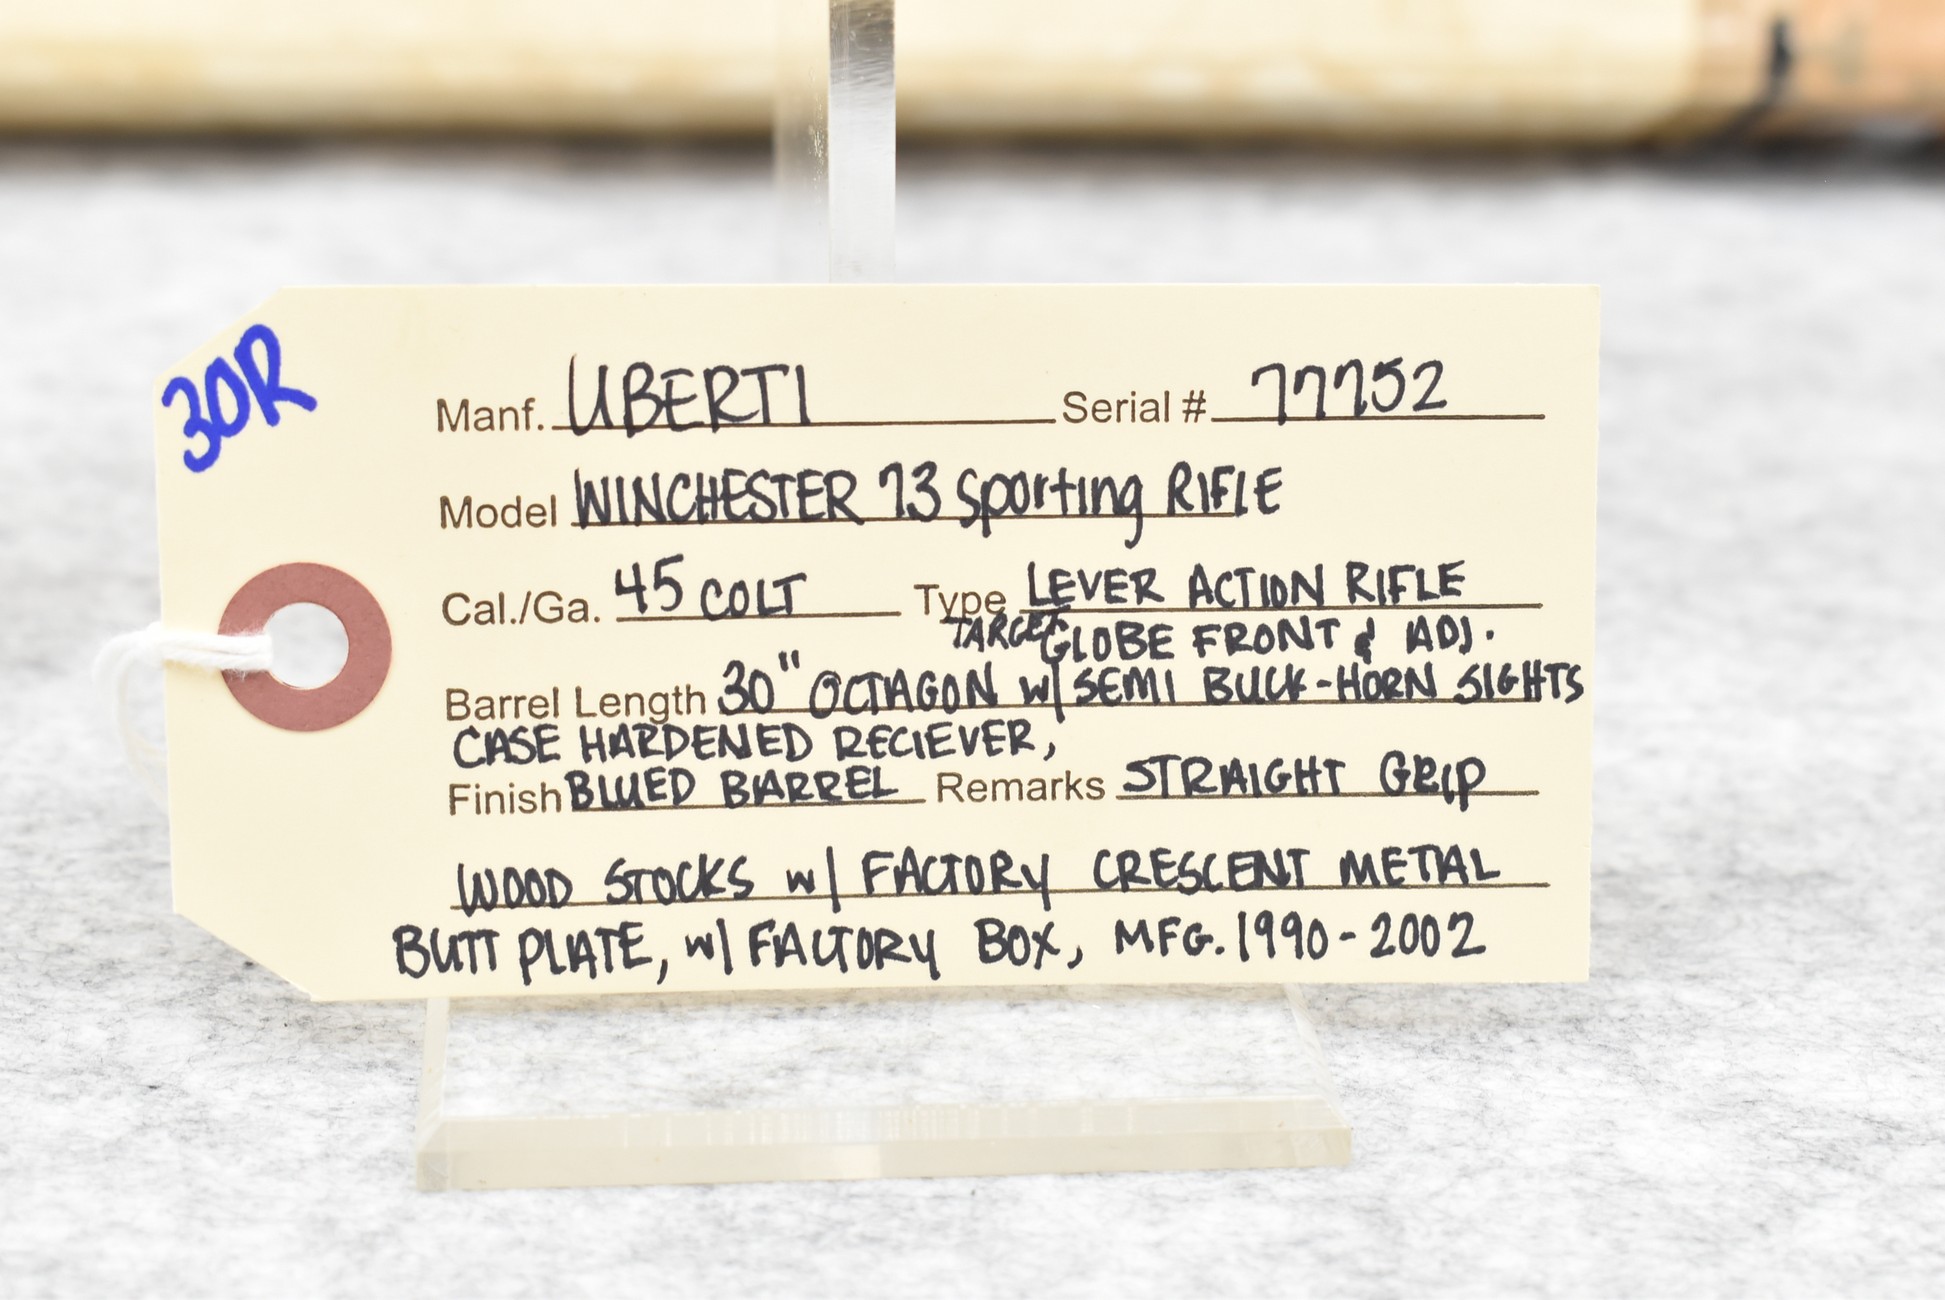 30R
Manf. UBERTI Serial # 77752
Model WINCHESTER 73 Sporting RIFLE
Cal./Ga. 45 COLT Type LEVER ACTION RIFLE
TARGET GLOBE FRONT & ADJ.
Barrel Length 30" OCTAGON w/ SEMI BUCK-HORN SIGHTS
CASE HARDENED RECIEVER,
Finish BLUED BARREL Remarks STRAIGHT GRIP
WOOD STOCKS w/ FACTORY CRESCENT METAL
BUTT PLATE, w/ FACTORY BOX, MFG. 1990-2002